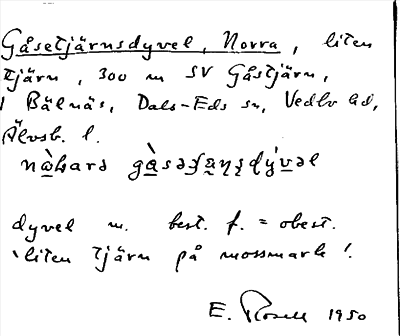 Gåsetjärnsdyvel, Norra, liten
tjärn, 300 m SV Gåstjärn,
Bälnäs, Dals-Eds sn, Vedbo hd,
Älvsb. l.
dyvel m. best. f. = obest.
'liten tjärn på mossmark'.
E. Rosell 1950